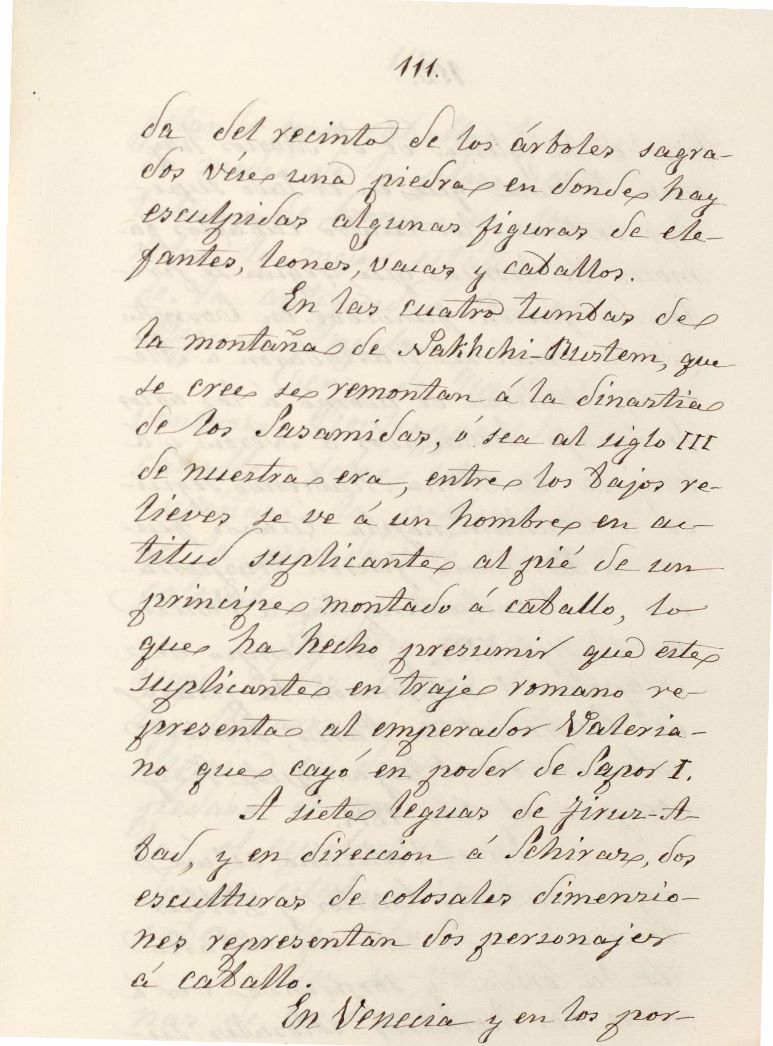 111.
da del recinto de los árboles sagra-
dos vése una piedra en donde hay
esculpidas algunas figuras de ele-
fantes, leones, vacas y caballos.
En las cuatro tumbas de
la montaña de Nakhchi-Rustem, que
se cree se remontan á la dinastia
de los Sasamidas, ó sea al siglo III
de nuestra era, entre los bajos re-
lieves se ve á un hombre en ac-
titud suplicante al pié de un
principe montado á caballo, lo
que ha hecho presumir que este
suplicante en traje romano re-
presenta al emperador Valeria-
no que cayó en poder de Sapor I.
A siete leguas de Firuz-A-
bad, y en direccion á Schiraz, dos
esculturas de colosales dimensio-
nes representan dos personajes
á caballo.
En Venecia y en los por-